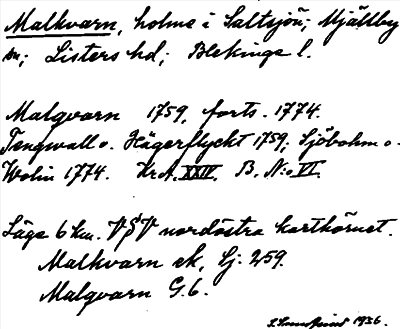 Malkvarn, holme i Saltsjön, Mjällby
sn; Listers hd; Blekinge l.
Malqvarn 1759, forts. 1774.
Tengwall o. Hägerflyckt 1759; Sjöbohm o.
Wolin 1774. Kr.A. XXIV. B. N:o VI.
Läge 6 km. VSV nordöstra karthörnet.
Malkvarn ek, Sj: 259.
Malqvarn G.6.
1936.